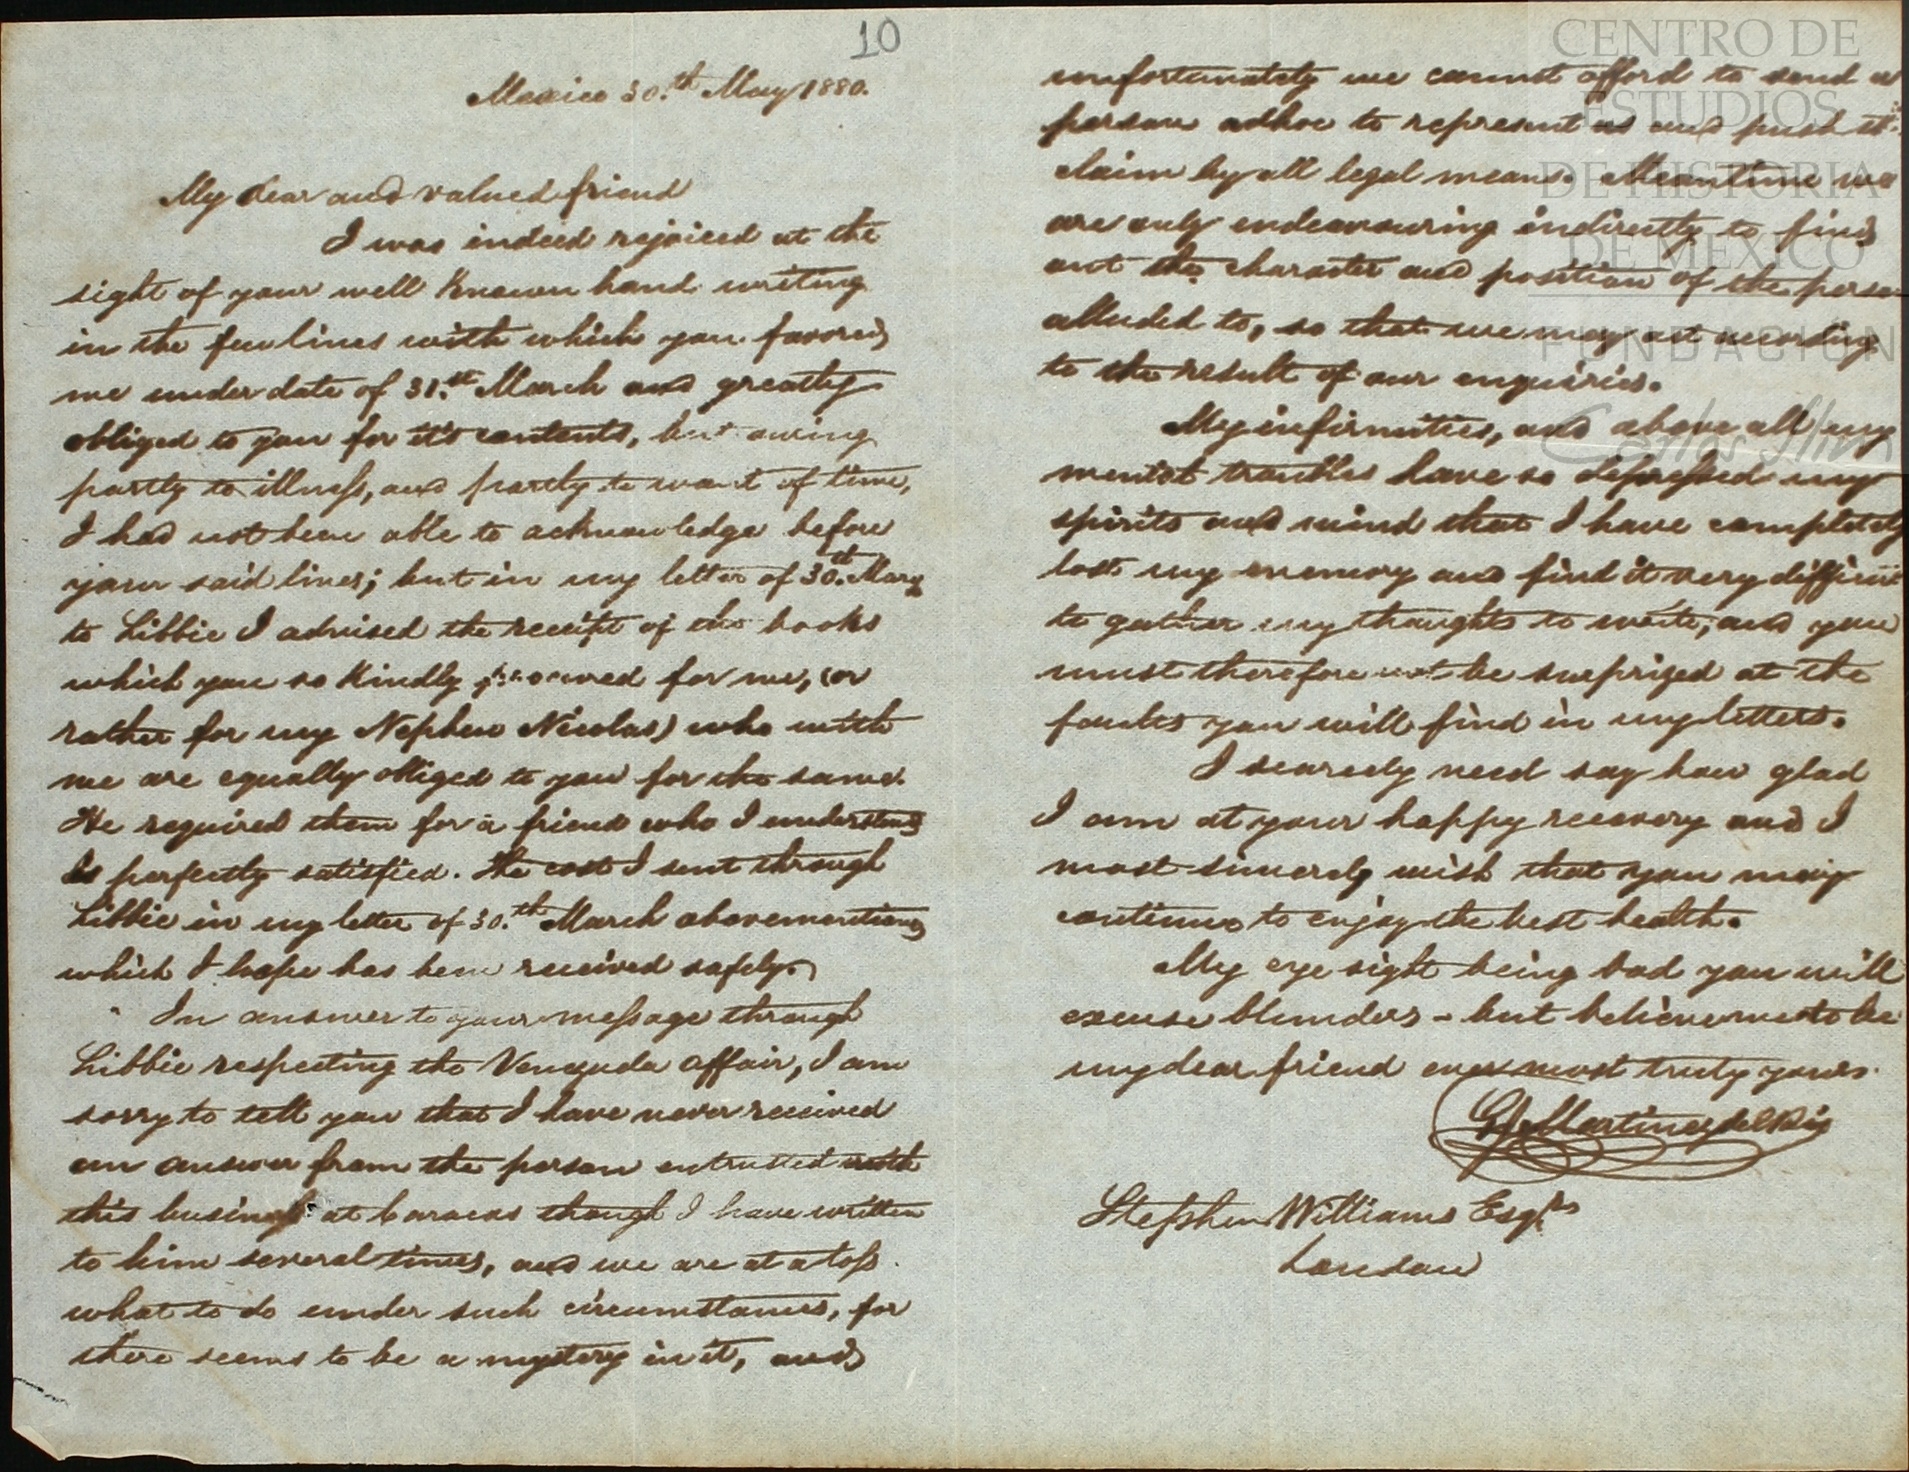 10
Mexico 30.th May 1880.
My dear and valued friend
I was indeed rejoiced at the
sight of your well Known hand writing
in the few lines with which you favored
me under date of 31.th March and greatly
obliged to you for it's contents, but owing
partly to illness, and partly to want of time,
I had not been able to acknowledge before
your said lines; but in my letter of 30.th
to Libbie I advised the receipt of the books
which you so Kindly procured for me, (or
rather for my Nephew Nicolas) who with
me are equally obliged to you for the same.
He required them for a friend who I understand
is perfectly satisfied. The cost I sent through
Libbie in my letter of 30.th March abovementioned
which I hope has been received safely.
In answer to your message through
Libbie respecting the Venezuela affair, I am
sorry to tell you that I have never received
an answer from the person entrusted with
this business at Caracas though I have written
to him several times, and we are at a loss
what to do under such circumstances, for
there seems to be a mystery in it, and
unfortunately we cannot afford to send a
person adhoc to represent us and push
claim by all legal means. Meantime we
are only endeavouring indirectly to find
out the character and position of the person
alluded to, so that we may act according
to the result of our enquiries.
My infirmities, and above all my
mental troubles have so depressed my
spirits and mind that I have completely
lost my memory and find it very difficult
to gather my thoughts to write, and you
must therefore not be surprized at the
faults you will find in my letters.
I scarcely need say how glad
I am at your happy recovery and I
most sincerely wish that you may
continue to enjoy the best health.
My eye sight being bad you will
excuse blunders - but believe me to be
my dear friend ever most truly yours.
Martinez del Rio
Stephen Williams Esqre
London
CENTRO DE
ESTUDIOS
DE HISTORIA
DE MEXICO
FUNDACIÓN
Carlos Slim